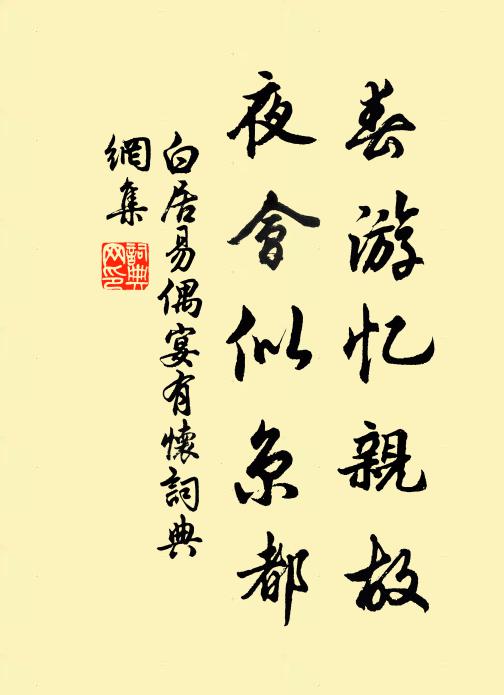 春游忆親故
夜會似京都
白居易偶宴有懷詞典
網集
詞典
网印